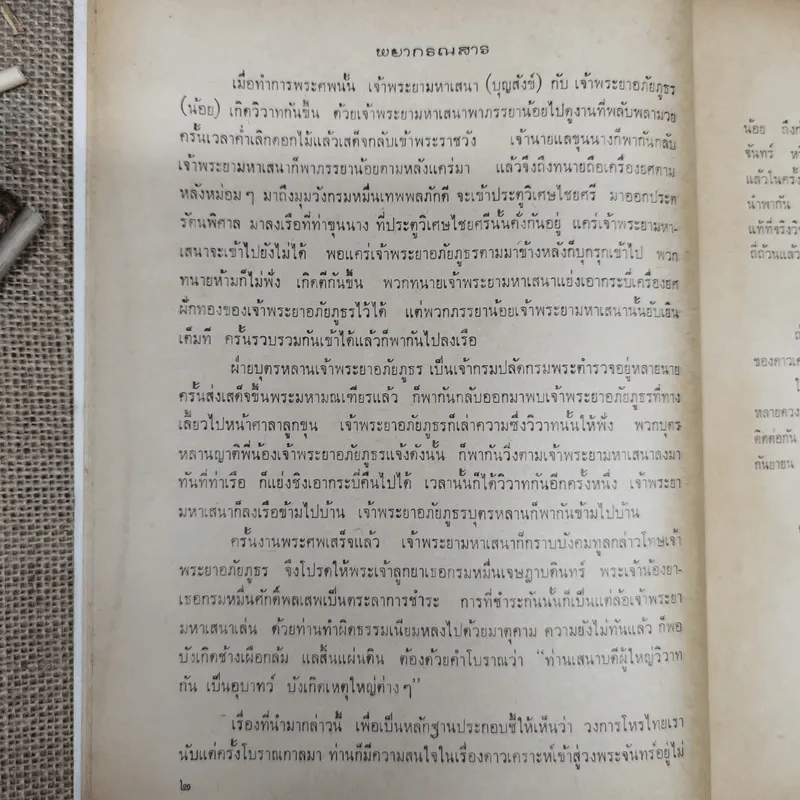 พยากรณสาร
เมื่อทำการพระศพนั้น เจ้าพระยามหาเสนา (บุญสังข์) กับ เจ้าพระยาอภัยภูธร
(น้อย) เกิดวิวาทกันขึ้น ด้วยเจ้าพระยามหาเสนาพาภรรยาน้อยไปดูงานที่พลับพลามวย
ครั้นเวลาค่ำเลิกดอกไม้แล้วเสด็จกลับเข้าพระราชวัง เจ้านายแลขุนนางก็พากันกลับ
เจ้าพระยามหาเสนาก็พาภรรยาน้อยตามหลังแคร่มา แล้วจึงถึงทนายถือเครื่องยศตาม
หลังหม่อมๆ มาถึงมุมวังกรมหมื่นเทพพลภักดี จะเข้าประตูวิเศษไชยศรี มาออกประตู
รัตนพิศาล มาลงเรือที่ท่าขุนนาง ที่ประตูวิเศษไชยศรีนั้นคั่งกันอยู่ แคร่เจ้าพระยามหา-
เสนาจะเข้าไปยังไม่ได้ พอแคร่เจ้าพระยาอภัยภูธรตามมาข้างหลังก็บุกรุกเข้าไป พวก
ทนายห้ามก็ไม่ฟัง เกิดตีกันขึ้น พวกทนายเจ้าพระยามหาเสนาแย่งเอากระบี่เครื่องยศ
ฝักทองของเจ้าพระยาอภัยภูธรไว้ได้ แต่พวกภรรยาน้อยเจ้าพระยามหาเสนานั้นยับเยิน
เต็มที ครั้นรวบรวมกันเข้าได้แล้วก็พากันไปลงเรือ
ฝ่ายบุตรหลานเจ้าพระยาอภัยภูธร เป็นเจ้ากรมปลัดกรมพระตำรวจอยู่หลายนาย
ครั้นส่งเสด็จขึ้นพระมหามณเฑียรแล้ว ก็พากันกลับออกมาพบเจ้าพระยาอภัยภูธรที่ทาง
เลี้ยวไปหน้าศาลาลูกขุน เจ้าพระยาอภัยภูธรก็เล่าความซึ่งวิวาทนั้นให้ฟัง พวกบุตร
หลานญาติพี่น้องเจ้าพระยาอภัยภูธรแจ้งดังนั้น ก็พากันวิ่งตามเจ้าพระยามหาเสนาลงมา
ทันที่ท่าเรือ ก็แย่งชิงเอากระบี่คืนไปได้ เวลานั้นก็ได้วิวาทกันอีกครั้งหนึ่ง เจ้าพระยา
มหาเสนาก็ลงเรือข้ามไปบ้าน เจ้าพระยาอภัยภูธรบุตรหลานก็พากันข้ามไปบ้าน
ครั้นงานพระศพเสร็จแล้ว เจ้าพระยามหาเสนาก็กราบบังคมทูลกล่าวโทษเจ้า
พระยาอภัยภูธร จึงโปรดให้พระเจ้าลูกยาเธอกรมหมื่นเจษฎาบดินทร์ พระเจ้าน้องยา-
เธอกรมหมื่นศักดิ์พลเสพเป็นตระลาการชำระ การที่ชำระกันนั้นก็เป็นแต่ล้อเจ้าพระยา
มหาเสนาเล่น ด้วยท่านทำผิดธรรมเนียมหลงไปด้วยมาตุคาม ความยังไม่ทันแล้ว ก็พอ
บังเกิดช้างเผือกล้ม แลสิ้นแผ่นดิน ต้องด้วยคำโบราณว่า “ท่านเสนาบดีผู้ใหญ่วิวาท
กัน เป็นอุบาทว์ บังเกิดเหตุใหญ่ต่างๆ”
เรื่องที่นำมากล่าวนี้ เพื่อเป็นหลักฐานประกอบชี้ให้เห็นว่า วงการโหรไทยเรา
นับแต่ครั้งโบราณกาลมา ท่านก็มีความสนใจในเรื่องดาวเคราะห์เข้าสู่วงพระจันทร์อยู่ไม่
๒
น้อย
จันทร์
แล้วในครั้ง
นำพากัน
แท้ที่จริง
ถี่ถ้วนแล้ว
หลายดวง
ติดต่อกัน
กันยายน